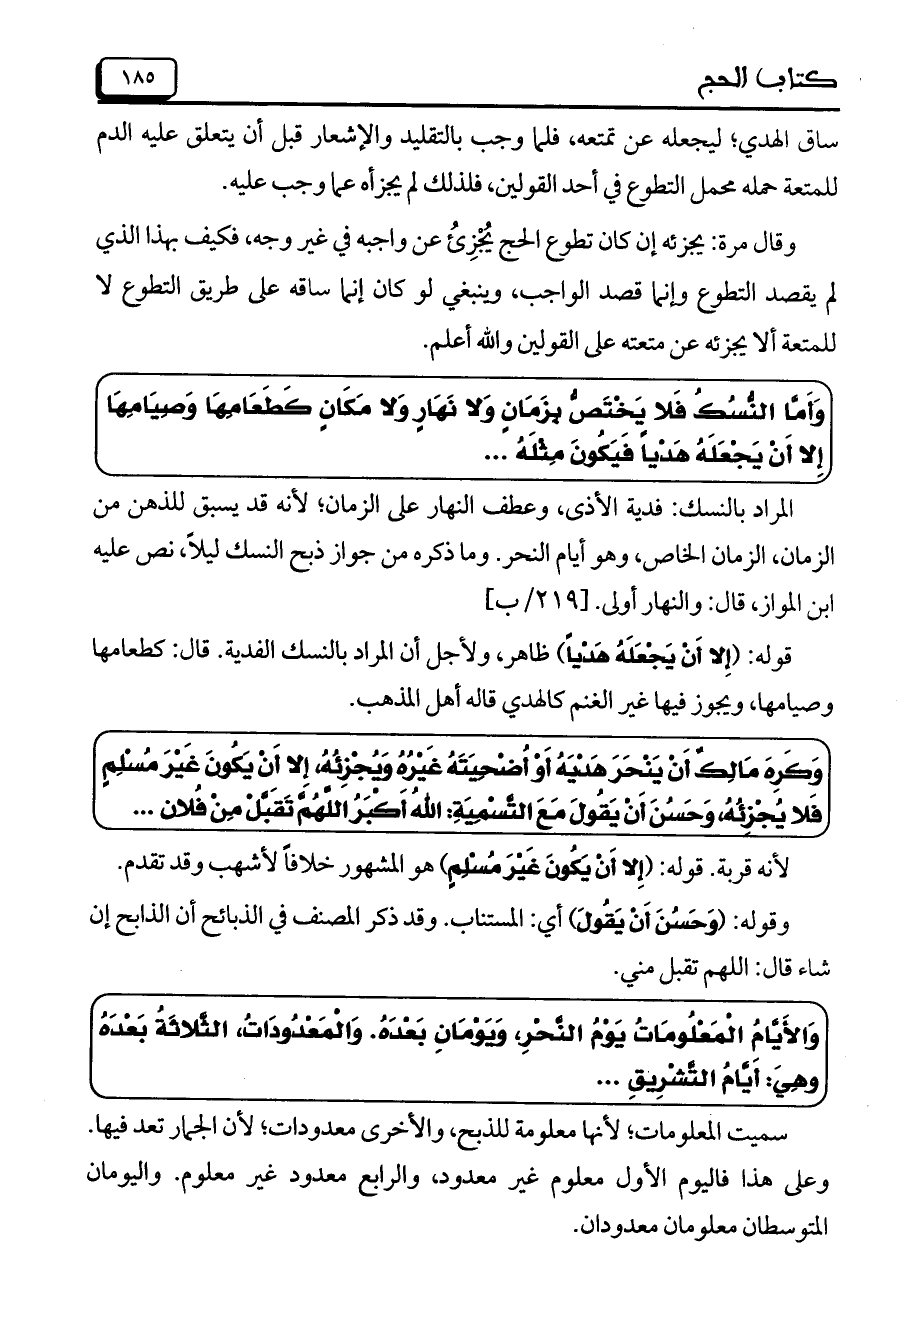 كتاب الحج
١٨٥
ساق الهدي؛ ليجعله عن تمتعه، فلما وجب بالتقليد والإشعار قبل أن يتعلق عليه الدم
للمتعة حمله محمل التطوع في أحد القولين، فلذلك لم يجزأه عما وجب عليه.
وقال مرة: يجزئه إن كان تطوع الحج يُجْزِئُ عن واجبه في غير وجه، فكيف بهذا الذي
لم يقصد التطوع وإنما قصد الواجب، وينبغي لو كان إنما ساقه على طريق التطوع لا
للمتعة ألا يجزئه عن متعته على القولين والله أعلم.
وَأَمَّا النُّسُكُ فَلا يَخْتَصُّ بِزَمَانٍ وَلا نَهَارٍ وَلا مَكَانٍ كَطَعَامِهَا وَصِيَامِهَا
إِلا أَنْ يَجْعَلَهُ هَدْياً فَيَكُونَ مِثْلَهُ ...
المراد بالنسك: فدية الأذى، وعطف النهار على الزمان؛ لأنه قد يسبق للذهن من
الزمان، الزمان الخاص، وهو أيام النحر. وما ذكره من جواز ذبح النسك ليلاً، نص عليه
ابن المواز، قال: والنهار أولى. [٢١٩/ ب]
قوله: (إِلا أَنْ يَجْعَلَهُ هَدْياً) ظاهر، ولأجل أن المراد بالنسك الفدية. قال: كطعامها
وصيامها، ويجوز فيها غير الغنم كالهدي قاله أهل المذهب.
وَكَرِهَ مَالِكٌ أَنْ يَنْحَرَ هَدْيَهُ أَوْ أُضْحِيَتَهُ غَيْرُهُ وَيُجْزِئُهُ، إِلا أَنْ يَكُونَ غَيْرَ مُسْلِمٍ
فَلا يُجْزِئُهُ، وَحَسُنَ أَنْ يَقُولَ مَعَ التَّسْمِيَةِ: اللهُ أَكْبَرُ اللَّهُمَّ تَقَبَّلْ مِنْ فُلان ...
لأنه قربة. قوله: (إِلا أَنْ يَكُونَ غَيْرَ مُسْلِمٍ) هو المشهور خلافاً لأشهب وقد تقدم.
وقوله: (وَحَسُنَ أَنْ يَقُولَ) أي: المستناب. وقد ذكر المصنف في الذبائح أن الذابح إن
شاء قال: اللهم تقبل مني.
وَالأَيَّامُ الْمَعْلُومَاتُ يَوْمُ النَّحْرِ، وَيَوْمَانِ بَعْدَهُ. وَالْمَعْدُودَاتُ، الثَّلاثَةُ بَعْدَهُ
وهِيَ: أَيَّامُ التَّشْرِيقِ ...
سميت المعلومات؛ لأنها معلومة للذبح، والأخرى معدودات؛ لأن الجمار تعد فيها.
وعلى هذا فاليوم الأول معلوم غير معدود، والرابع معدود غير معلوم. واليومان
المتوسطان معلومان معدودان.